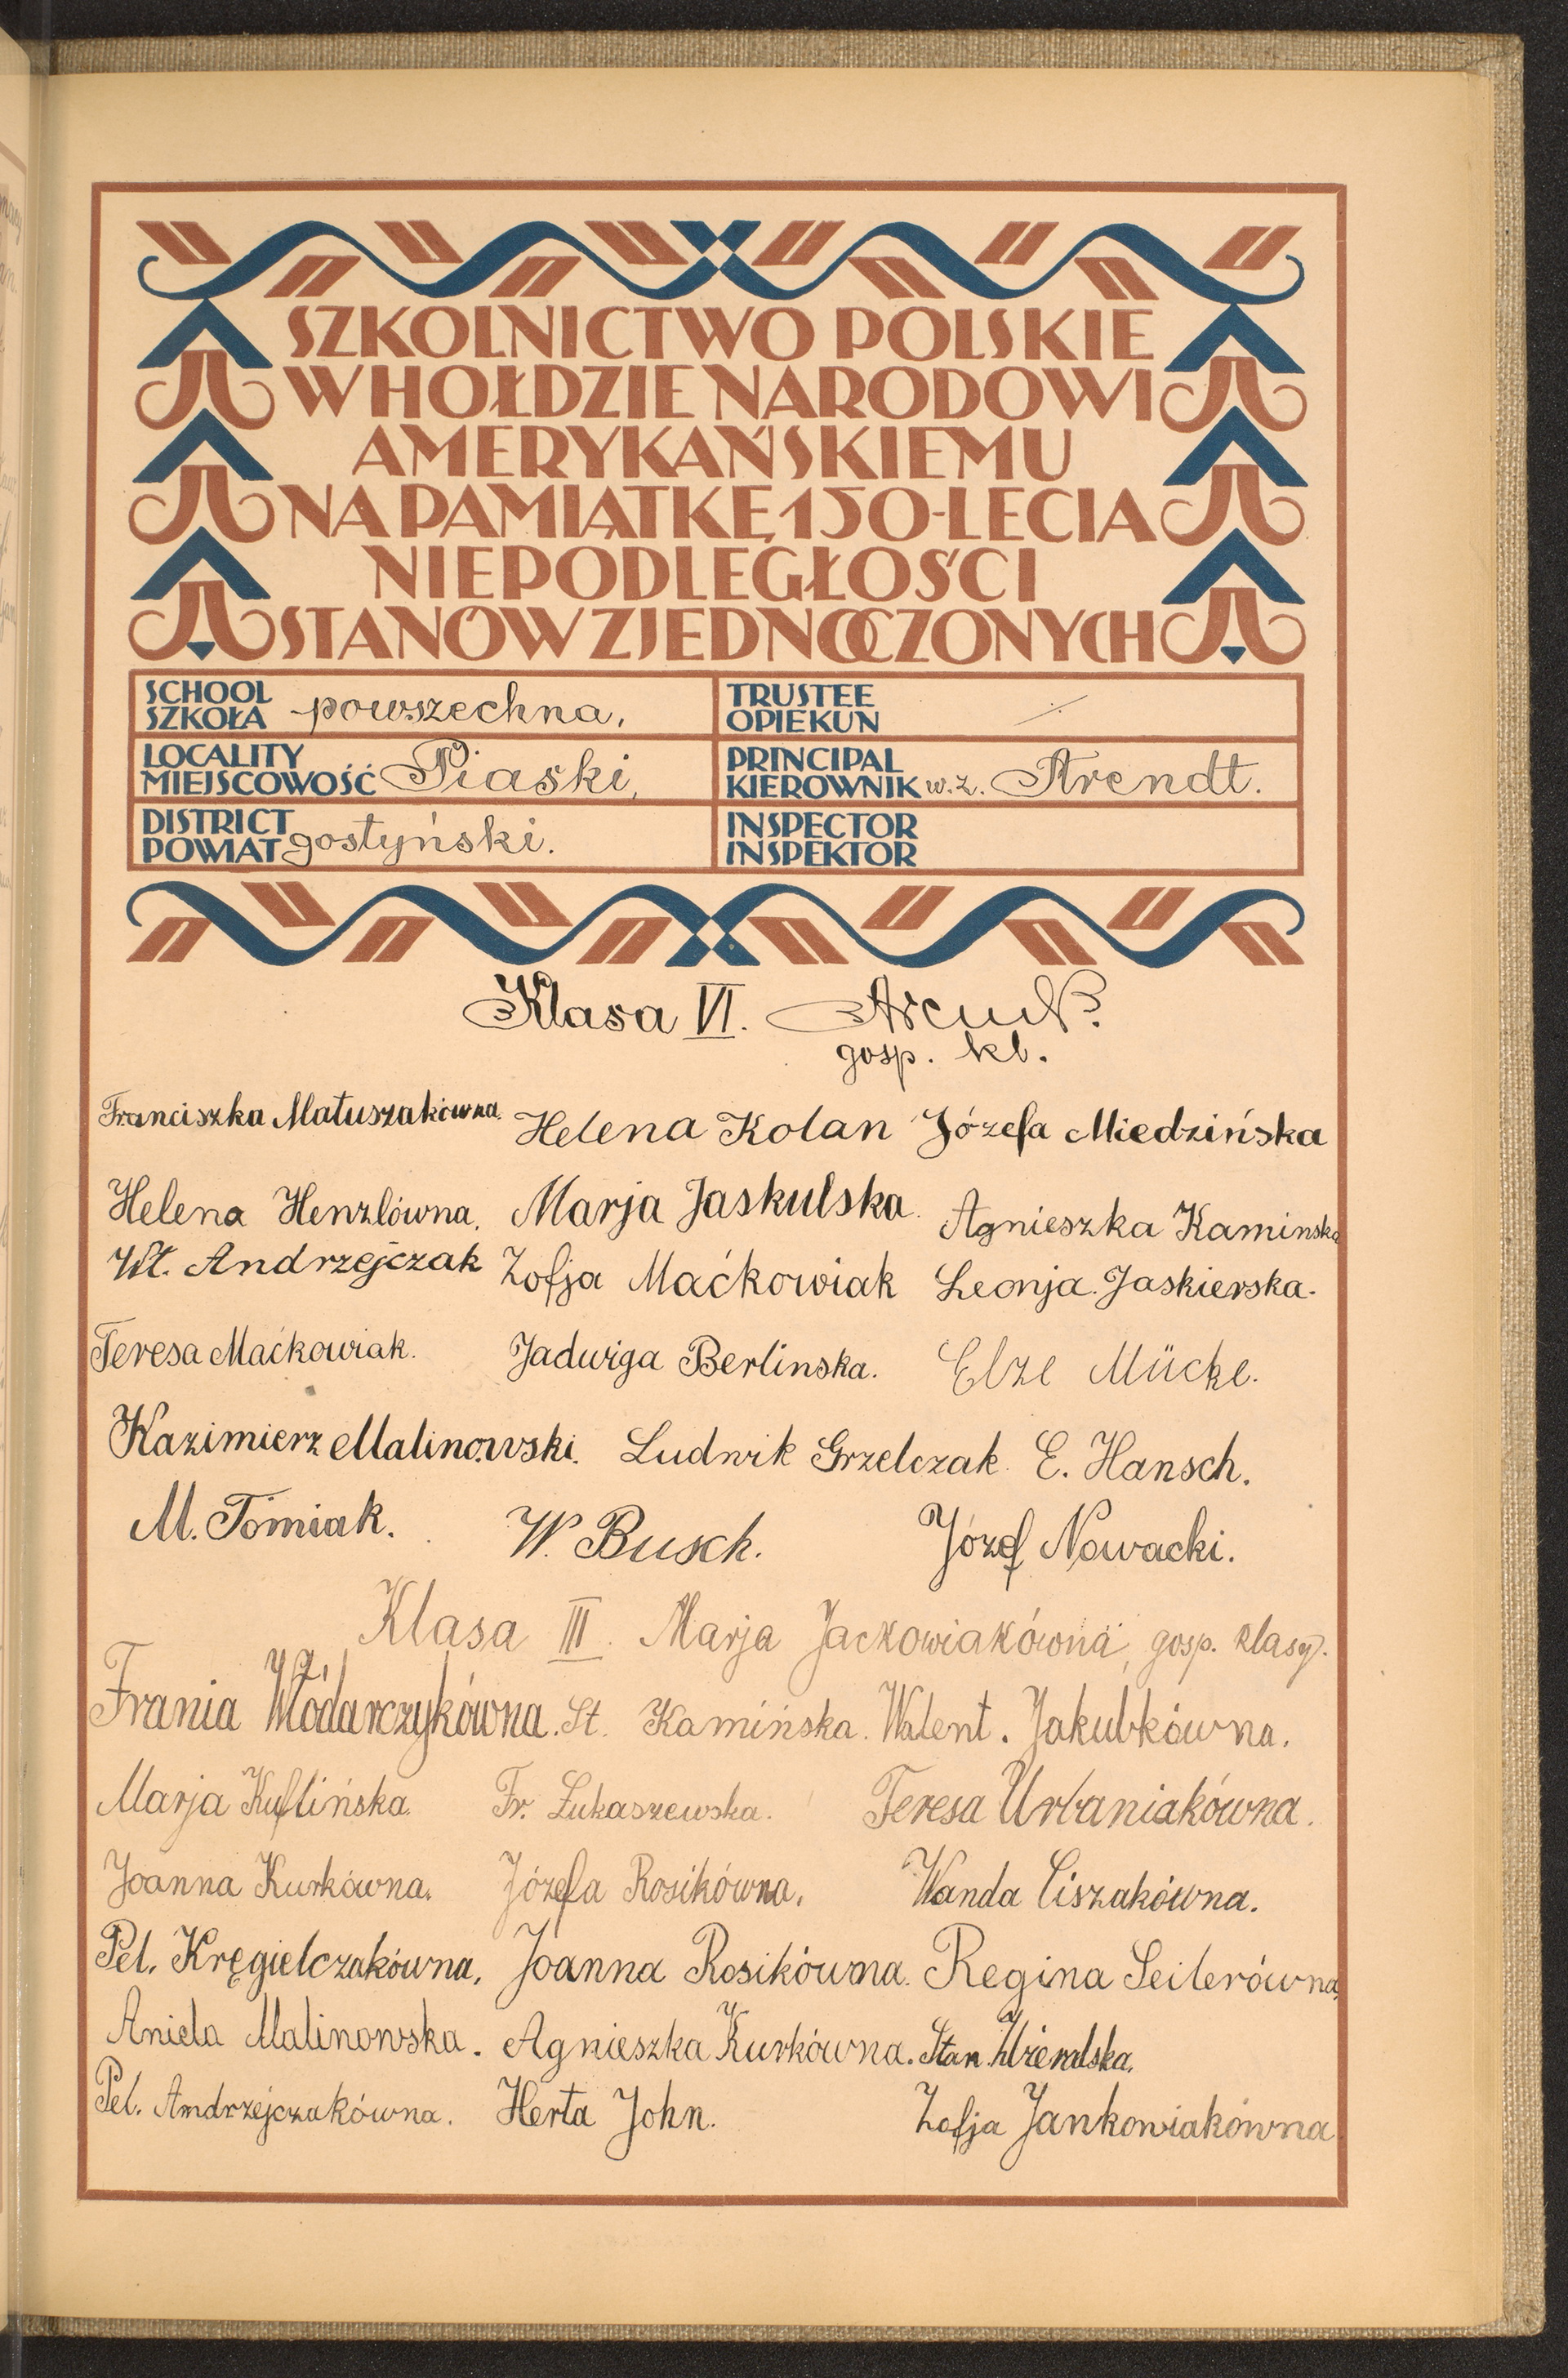 SZKOLNICTWO POLSKIE
W HOŁDZIE NARODOWI
AMERYKAŃSKIEMU
NA PAMIĄTKĘ 150-LECIA
NIEPODLEGŁOŚCI
STANÓW ZJEDNOCZONYCH
SCHOOL
SZKOŁA powszechna,
TRUSTEE
OPIEKUN
LOCALITY
MIEJSCOWOŚĆ Piaski,
PRINCIPAL
KIEROWNIK w.z. Arendt.
DISTRICT
POWIAT gostyński.
INSPECTOR
INSPEKTOR
Klasa VI. Arendt
gosp. kl.
Franciszka Matuszakówna. Helena Kolan Józefa Miedzińska
Helena Henzlówna. Marja Jaskulska. Agnieszka Kaminska
Wł. Andrzejczak Zofja Maćkowiak Leonja Jaskierska.
Teresa Maćkowiak. Jadwiga Berlinska. Elze Mücke.
Kazimierz Malinowski. Ludwik Grzelczak. E. Hansch.
M. Tomiak. W. Busch. Józef Nowacki.
Klasa III. Marja Jackowiakówna, gosp. klasy.
Frania Włódarczykówna. St. Kamińska. Walent. Jakubkówna.
Marja Kuflińska. Fr. Łukaszewska. Teresa Urbaniakówna.
Joanna Kurkówna. Józefa Rosikówna. Wanda Ciszakówna.
Pel. Kręgielczakówna. Joanna Rosikówna. Regina Seilerówna
Aniela Malinowska. Agnieszka Kurkówna. Stan.
Pel. Andrzejczakówna. Herta John. Zofja Jankowiakówna